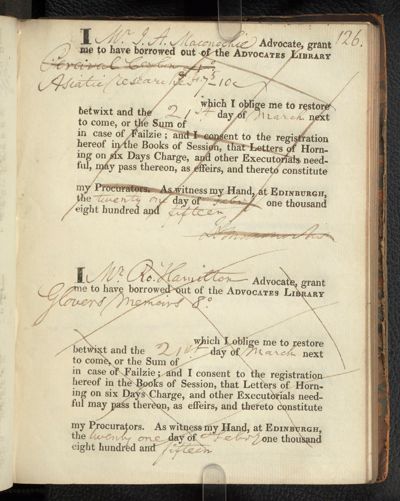 126.
I Mr. J. A. Maconochie Advocate, grant
me to have borrowed out of the ADVOCATES LIBRARY
Percival Ceylon 4o
Asiatic researches
which I oblige me to restore
betwixt and the 21st day of March next
to come, or the Sum of
in case of Failzie; and I consent to the registration
hereof in the Books of Session, that Letters of Horn-
ing on six Days Charge, and other Executorials need-
ful, may pass thereon, as effeirs, and thereto constitute
my Procurators. As witness my Hand, at EDINBURGH,
the twenty one day of Febry one thousand
eight hundred and fifteen
I Mr. Ro. Hamilton Advocate, grant
me to have borrowed out of the ADVOCATES LIBRARY
Glovers Memoirs 8o
which I oblige me to restore
betwixt and the 21st day of March next
to come, or the Sum of
in case of Failzie; and I consent to the registration
hereof in the Books of Session, that Letters of Horn-
ing on six Days Charge, and other Executorials need-
ful may pass thereon, as effeirs, and thereto constitute
my Procurators. As witness my Hand, at EDINBURGH,
the twenty one day of Febry one thousand
eight hundred and fifteen